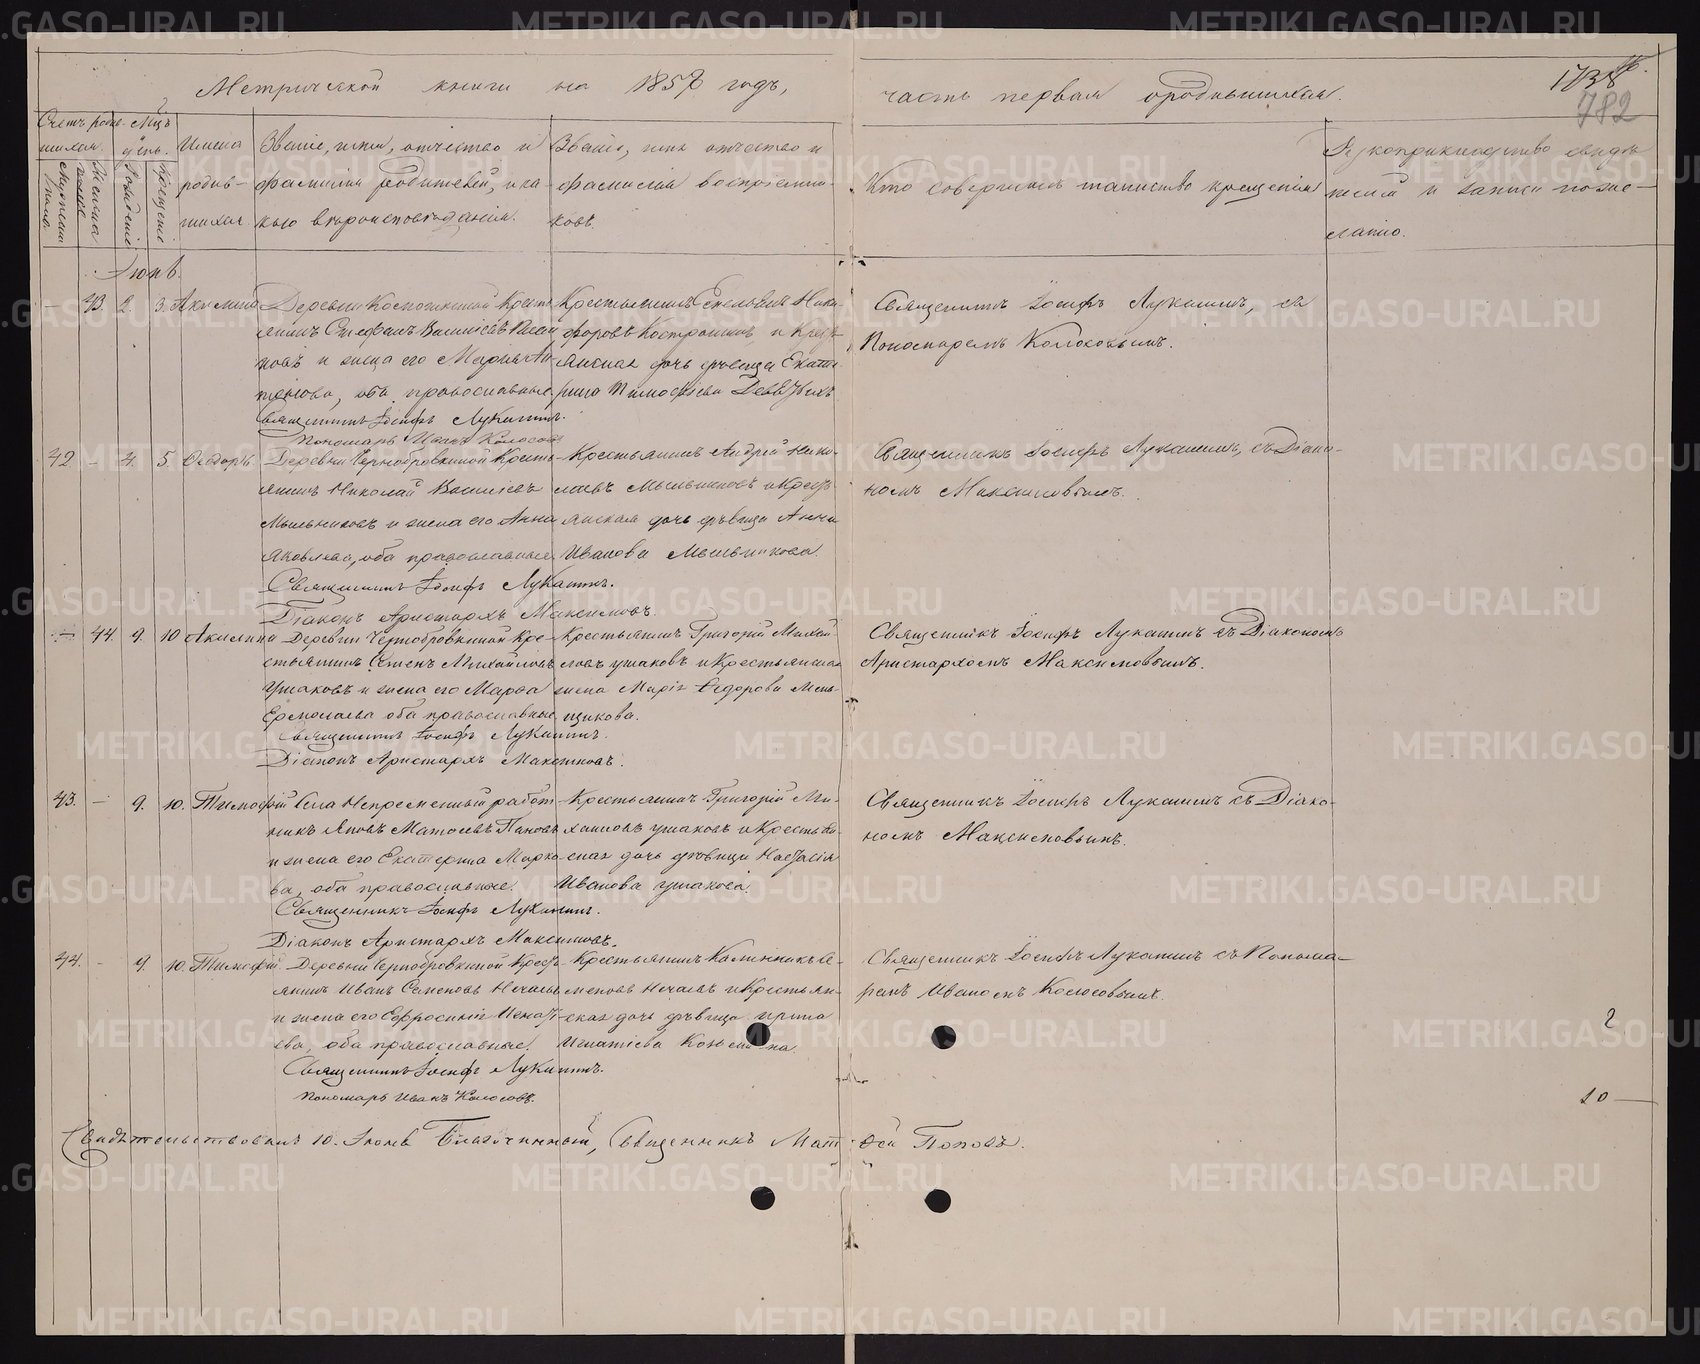 Метрической книги на 1857 годъ,
часть первая о родившихся.
782
Счетъ родив-
шихся.
Мужеска
пола.
Женска
пола.
Мцъ и
день.
Рожденiе
Крещенiе
Имена
родив-
шихся
Званiе, имя, отчество и
фамилiя родителей, и ка-
кого вероисповеданiя.
Званiе, имя отчество и
фамилiя воспрiемни-
ковъ.
Кто совершилъ таинство крещенiя
Рукоприкладство свиде-
телей и записи по же-
ланiю.
Iюнь.
43. 2. 3. Акилина
Деревни Крестья-
янинъ Стефанъ Василiевъ
и жена его Марiя
оба православные
Священникъ Iосифъ Лукашинъ.
Пономарь Иванъ Колосовъ
Крестьянинъ Савелiй Ники-
форовъ Костромин и Кресть-
янская дочь девица Екате-
рина Тимофеева
Священникъ Iосифъ Лукашинъ, съ
Пономаремъ Колосовымъ.
42 - 4. 5. Феодоръ
Деревни Чернобровкиной Кресть-
янинъ Николай Василiевъ
Мыльниковъ и жена его Анна
Яковлева, оба православные
Священникъ Iосифъ Лукашинъ.
Дiаконъ Аристархъ Максимовъ.
Крестьянинъ Андрей Нико-
лаевъ Мыльниковъ и Кресть-
янская дочь девица Анна
Иванова Мыльникова.
Священникъ Iосифъ Лукашинъ, съ Дiако-
номъ Максимовымъ.
- 44. 9. 10 Акилина
Деревни Чернобровкиной Кре-
стьянинъ Михайловъ
Ушаковъ и жена его Марфа
Ермолаева оба православные
Священникъ Iосифъ Лукашинъ.
Дiаконъ Аристархъ Максимовъ.
Крестьянинъ Григорiй Михай-
ловъ Ушаковъ и Крестьянская
жена Марiя Федорова Мень-
щикова.
Священникъ Iосифъ Лукашинъ съ Дiакономъ
Аристархомъ Максимовымъ.
43. - 9. 10. Тимофей
Села Непременный работ-
никъ Яковъ Матвеевъ Пановъ
и жена его Екатерина Марко-
ва, оба православные.
Священникъ Iосифъ Лукашинъ.
Дiаконъ Аристархъ Максимовъ.
Крестьянинъ Григорiй Ми-
хайловъ Ушаковъ и Крестьян-
ская дочь девица Настасiя
Иванова Ушакова.
Священникъ Iосифъ Лукашинъ съ Дiако-
номъ Максимовымъ.
44. - 9. 10. Тимофей
Деревни Чернобровкиной Кресть-
янинъ Иванъ Семеновъ Нечаевъ
и жена его Ефросинiя Игнатi-
ева, оба православные.
Священникъ Iосифъ Лукашинъ.
Пономарь Иванъ Колосовъ.
Крестьянинъ Калинникъ Се-
меновъ Нечаевъ и Крестьян-
ская дочь девица Ирина
Игнатiева
Священникъ Iосифъ Лукашинъ съ Понома-
ремъ Иваномъ Колосовымъ.
2
10
Свидетельствовалъ 10. Iюля Благочинный, Священникъ Матфей Поповъ.
METRIKI.GASO-URAL.RU